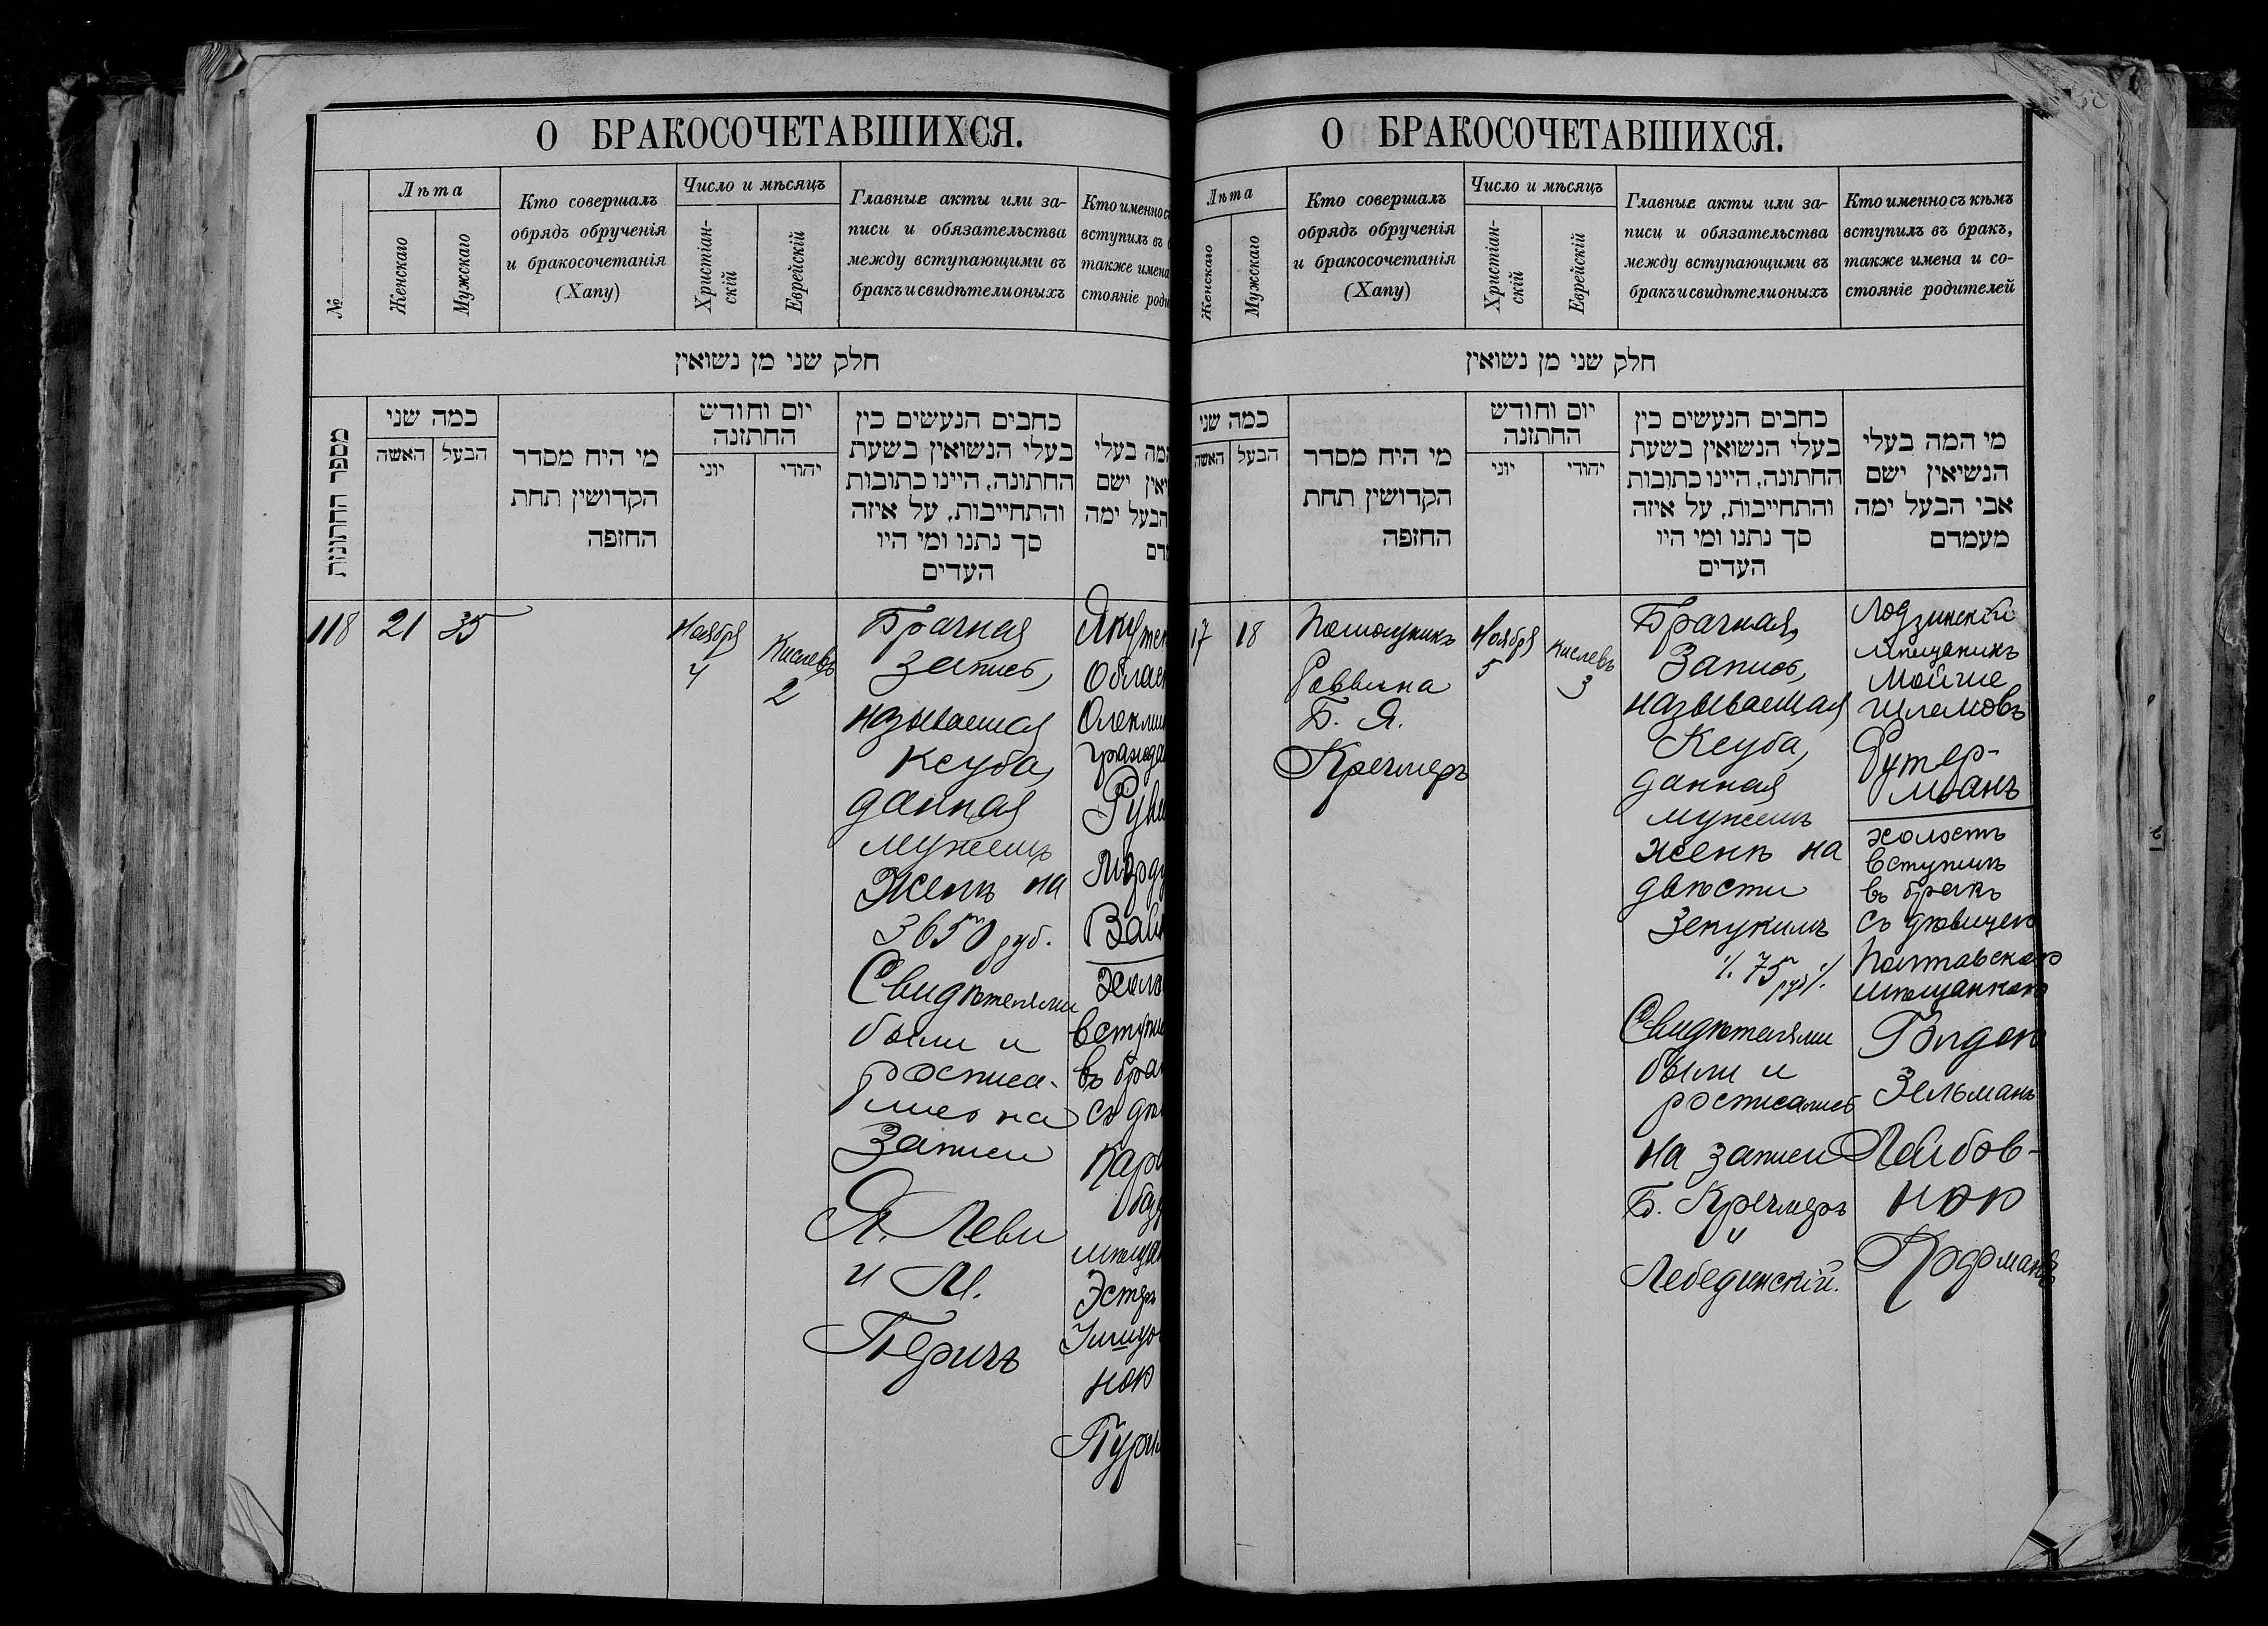 О БРАКОСОЧЕТАВШИХСЯ.
№
Лѣта
Женскаго
Мужскаго
Кто совершалъ
обрядъ обрученія
и бракосочетанія
(Хапу)
Число и мѣсяцъ
Христіан-
скій
Еврейскій
Главные акты или за-
писи и обязательства
между вступающими въ
бракъ и свидѣтели оныхъ
Кто именно съ
вступилъ въ б
также имена
стояніе роди
חלק שני מן נשואין
מספר החתונות
כמה שני
האשה
הבעל
מי היח מסדר
הקדושין תחת
החזפה
יום וחודש
החתזנה
יוני
יהודי
כחבים הנעשים כין
בעלי הנשואין בשעת
החתונה, היינו כתובות
והתחייבות, על איזה
סך נתנו ומי היו
העדים
המה בעלי
ואין ישם
הבעל ימה
118
21
35
Ноября
4
Кислевъ
2
Брачная
запись,
называемая
Ксуба,
данная
мужемъ
Женѣ на
3650 руб.
Свидѣтелями
были и
росписа-
лись на
Записи
Я. Леви
и М.
Перичъ
Якутск
Облас
Олекми
граждан
Руви
Морду
Вай
Холо
вступи
въ бра
съ дѣ
Кар
мѣщан
Эстер
ною
О БРАКОСОЧЕТАВШИХСЯ.
Лѣта
Женскаго
Мужскаго
Кто совершалъ
обрядъ обрученія
и бракосочетанія
(Хапу)
Число и мѣсяцъ
Христіан-
скій
Еврейскій
Главные акты или за-
писи и обязательства
между вступающими въ
бракъ и свидѣтели оныхъ
Кто именно съ кѣмъ
вступилъ въ бракъ,
также имена и со-
стояніе родителей
חלק שני מן נשואין
כמה שני
האשה
הבעל
מי היח מסדר
הקדושין תחת
החזפה
יום וחודש
החתזנה
יוני
יהודי
כחבים הנעשים כין
בעלי הנשואין בשעת
החתונה, היינו כתובות
והתחייבות, על איזה
סך נתנו ומי היו
העדים
מי המה בעלי
הנשיאין ישם
אבי הבעל ימה
מעמדם
17
18
Помощникъ
Раввина
Б. Я.
Кречмеръ
Ноября
5
Кислевъ
3
Брачная
Запись,
называемая
Ксуба,
данная
мужемъ
женѣ на
двѣсти
Зекукимъ
75 руб
Свидѣтелями
были и
росписались
на записи
Б. Кречмеръ
и
Лебединскій.
Лодзинскій
мѣщанинъ
Мойше
Шлемовъ
Футер-
манъ
холостъ
вступилъ
въ бракъ
съ дѣвицею
Полтавскою
мѣщанкою
Голдою
Зельманъ
Лейбов-
ною